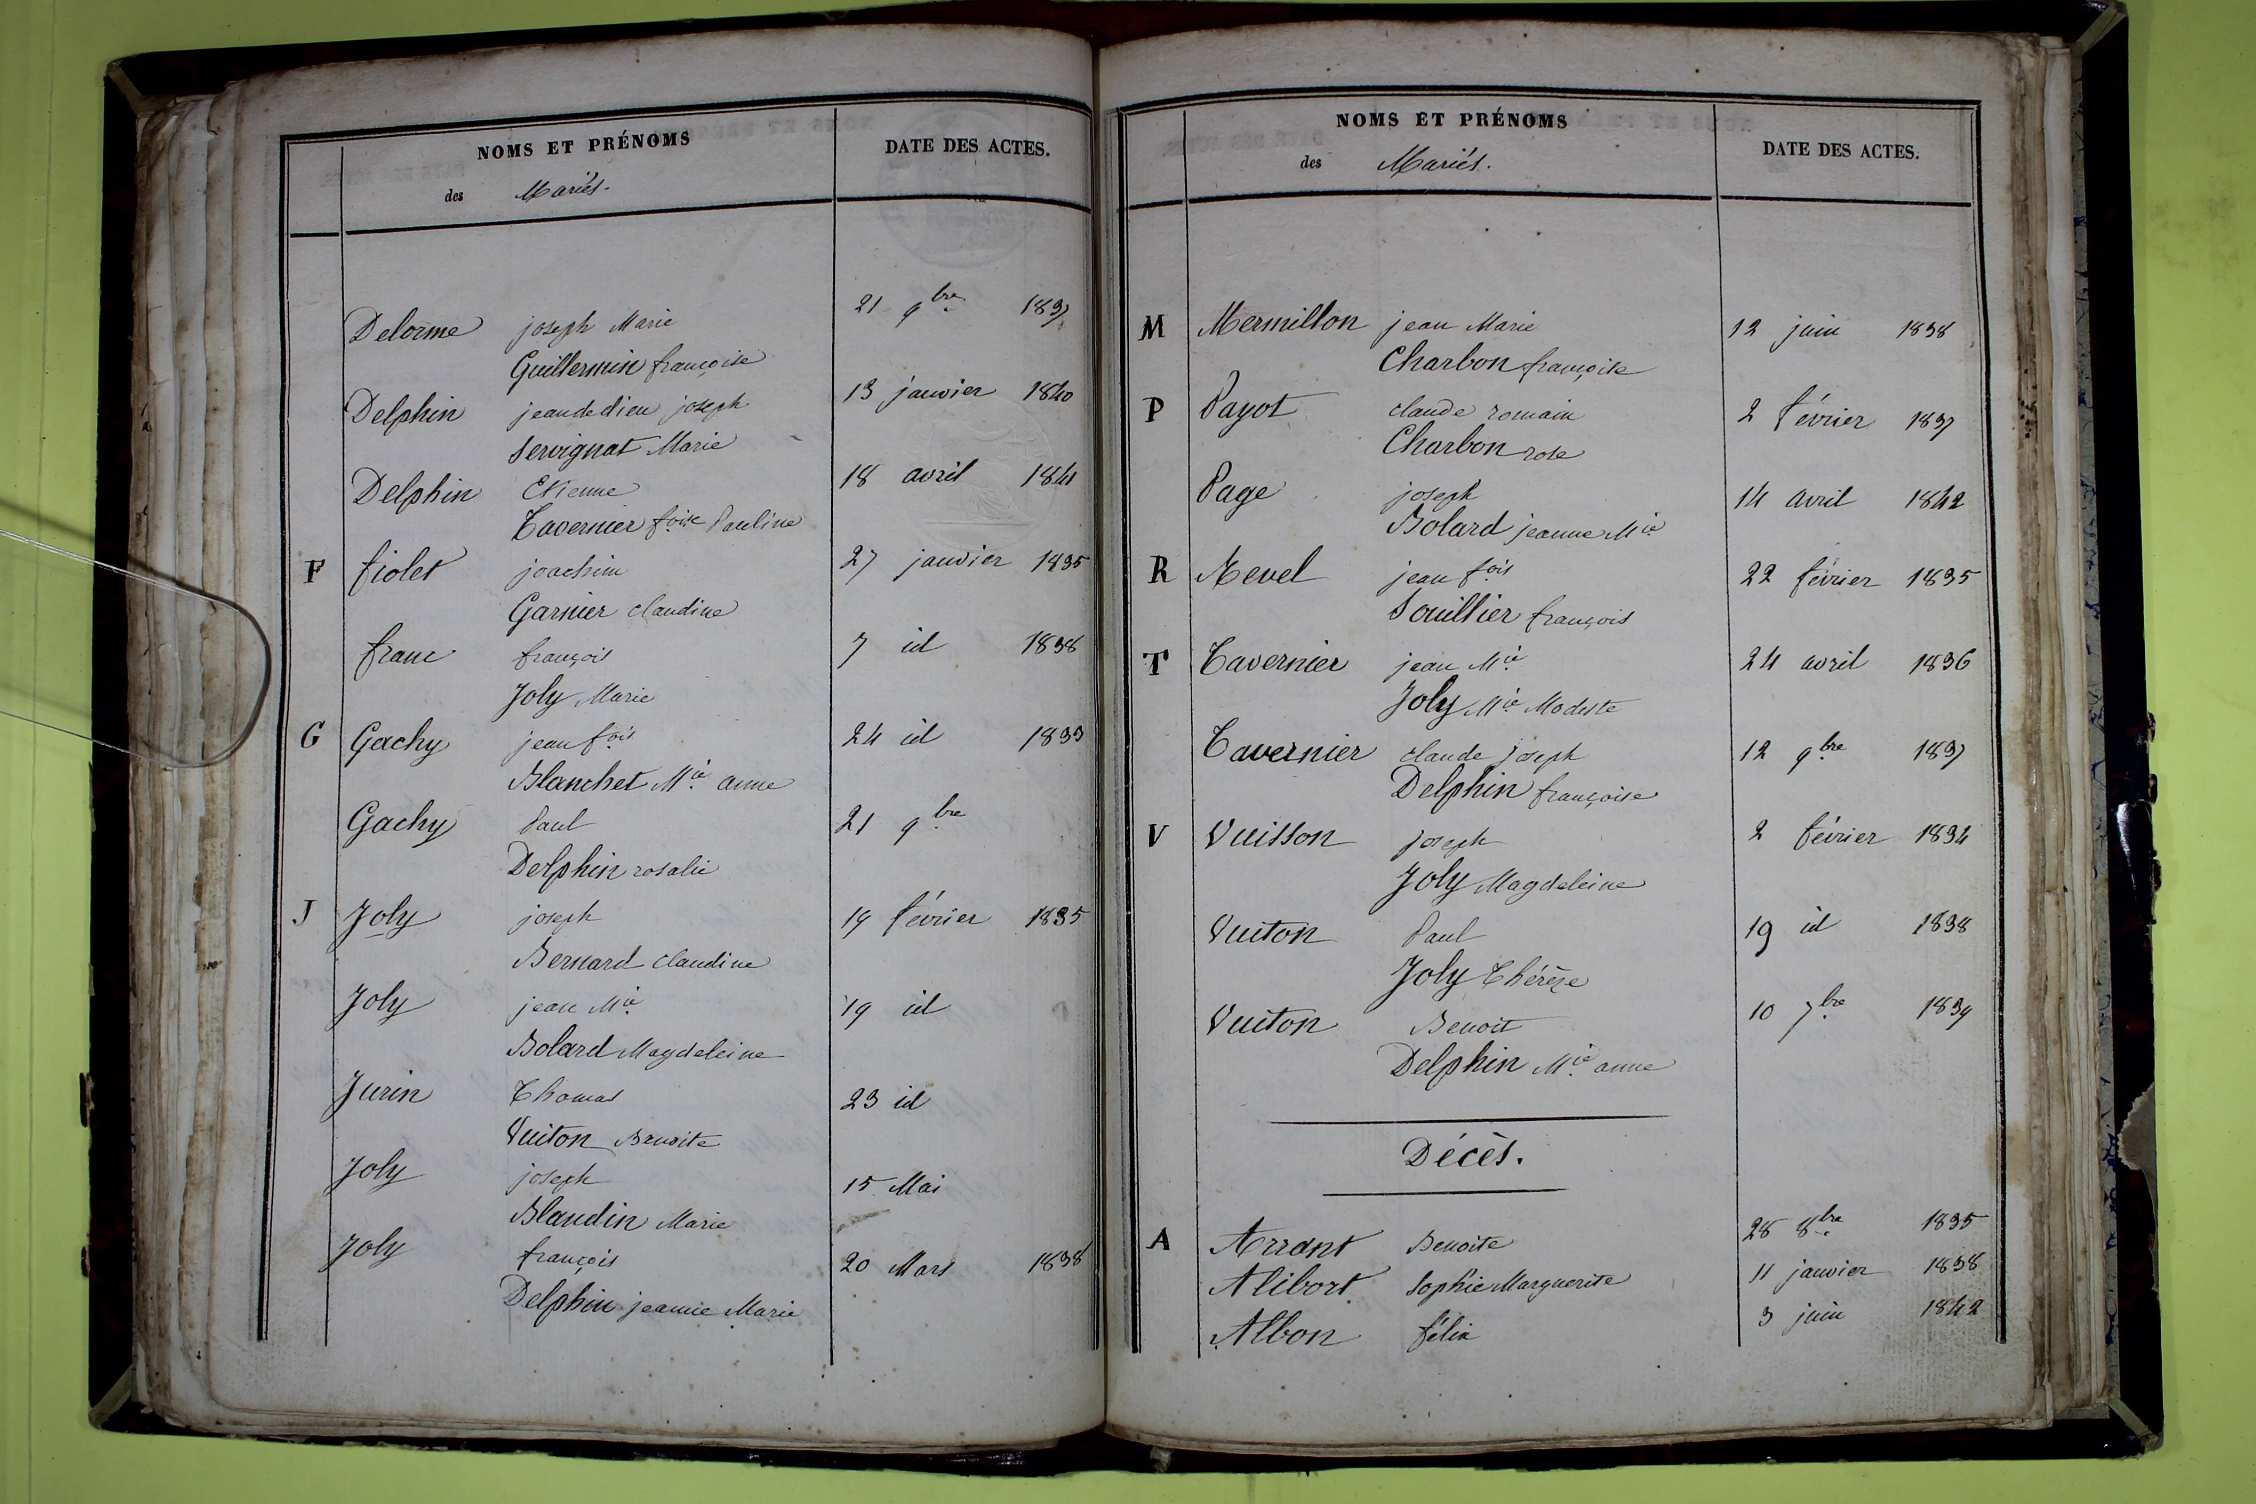 NOMS ET PRÉNOMS
des Mariés.
DATE DES ACTES.
Delorme joseph Marie 21 9bre 1837
Guillermin françoise
Delphin jeandedieu joseph 13 janvier 1840
Servignat Marie
Delphin Etienne 18 avril 1841
Tavernier foise Pauline
F fiolet joachim 27 janvier 1835
Garnier claudine
franc françois 7 id 1838
Joly Marie
G Gachy jean fois 24 id 1833
Blanchet Mie anne
Gachy Paul 21 9bre
Delphin rosalie
J Joly joseph 19 février 1835
Bernard claudine
Joly jean Mie 19 id
Bolard Magdeleine
Jurin Thomas 23 id
Vuiton Benoite
Joly joseph 15 Mai
Blandin Marie
Joly françois 20 Mars 1838
Delphin jeanne Marie
NOMS ET PRÉNOMS
des Mariés.
DATE DES ACTES.
M Mermillon jean Marie 12 juin 1838
Charbon françoise
P Payot claude romain 2 février 1837
Charbon rose
Page joseph 14 avril 1842
Bolard jeanne Mie
R Revel jean fois 22 février 1835
Souillier françois
T Tavernier jean Mie 24 avril 1836
Joly Mie Modeste
Tavernier claude joseph 12 9bre 1837
Delphin françoise
V Vuisson joseph 2 février 1834
Joly Magdeleine
Vuiton Paul 19 id 1838
Joly Thérèse
Vuiton Benoit 10 7bre 1839
Delphin Mie anne
Décès.
A Arrant Benoite 28 8bre 1835
Alibort Sophie Marguerite 11 janvier 1838
Albon félix 3 juin 1842